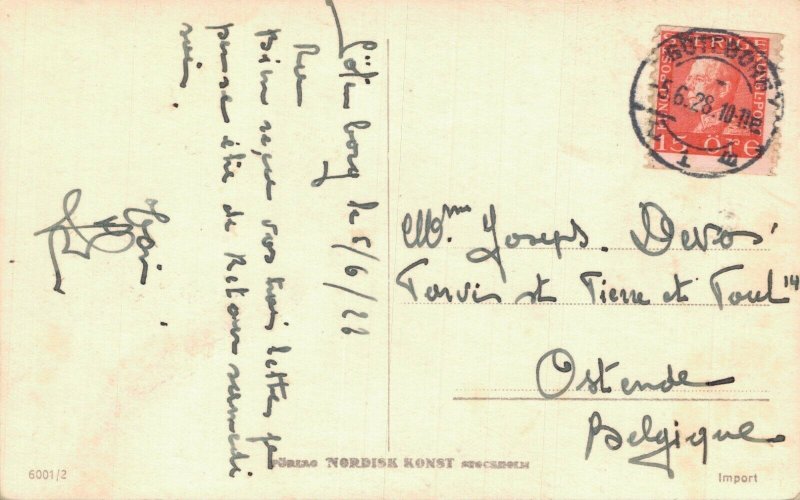 Göteborg le 5/6/28
Bien reçue vos trois lettres je
pense être de Retour samedi
soir.
SVERIGE
15 ÖRE
GÖTEBORG
5.6.28.10-11
Mme Joseph. Devos
Parvis st Pierre et Paul 14
Ostende
Belgique
6001/2
FÖRLAG NORDISK KONST STOCKHOLM
Import